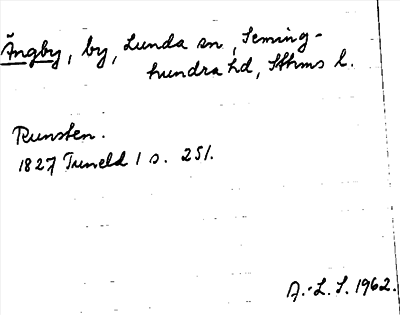 Ängby, by, Lunda sn, Seming-
hundra hd, Sthms l.
Runsten.
1827 Tuneld 1 s. 251.
A.-L. S. 1962.